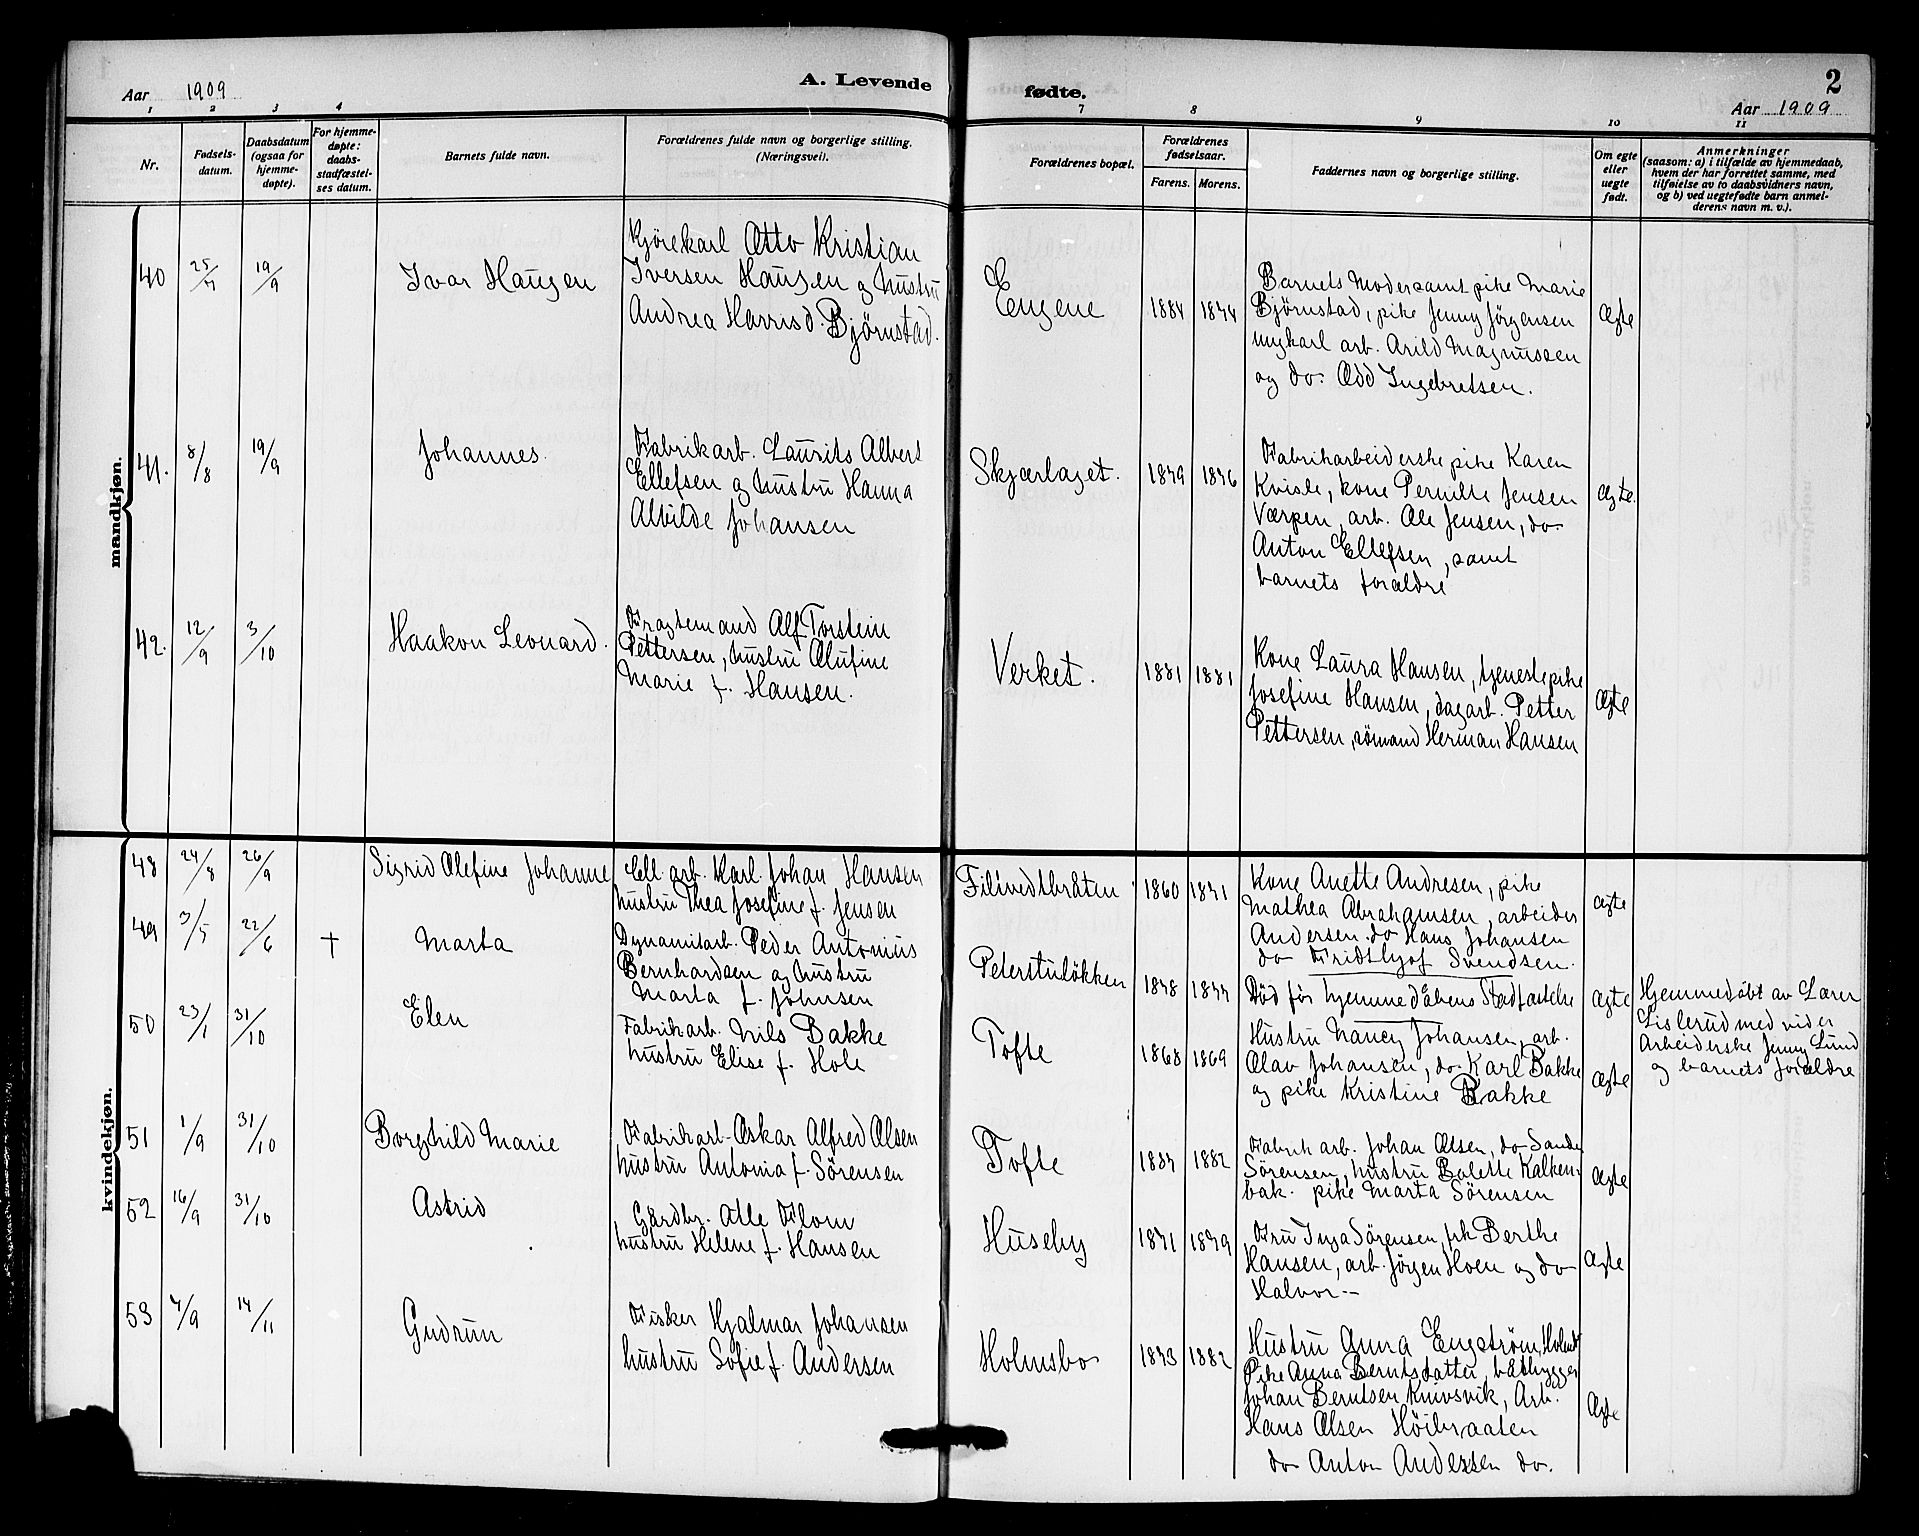 A. Levende
fødte.
2
Aar 1909
Aar 1909
1 2 3 4 7 8 9 10 11
Nr.
Fødsels-
datum.
Daabsdatum
(ogsaa for
hjemme-
døpte).
For hjemme-
døpte:
daabs-
stadfæstel-
ses datum.
Barnets fulde navn.
Forældrenes fulde navn og borgerlige stilling.
(Næringsvei).
Forældrenes bopæl.
Forældrenes
fødselsaar.
Farens. Morens.
Faddernes navn og borgerlige stilling.
Om egte
eller
uegte
født.
Anmerkninger
(saasom: a) i tilfælde av hjemmedaab,
hvem der har forrettet samme, med
tilføielse av to daabsvidners navn,
og b) ved uegtefødte barn anmel-
derens navn m. v.).
mandkjøn.
40 25/7 19/9
Ivar Haugen
Kjørekarl Otto Kristian
Iversen Haugen og hustru
Andrea Harrisd. Bjørnstad.
Engene
1884 1874
Barnets Moder samt pike Marie
Bjørnstad, pike Jenny Jørgensen
ungkarl arb. Arild Magnussen
og do. Odd Ingebretsen.
Ægte
41. 8/8 19/9
Johannes
Fabrikarb. Laurits Albert
Ellefsen og hustru Hanna
Alvilde Johansen
Skjærlaget.
1879 1876
Fabrikarbeiderske pike Karen
Kvisle, kone Pernille Jensen
Værpen, arb. Ole Jensen, do
Anton Ellefsen, samt
barnets forældre
Ægte.
42. 12/9 3/10
Haakon Leonard.
Fragtemand Alf Torstein
Pettersen, hustru Olufine
Marie f. Hansen.
Verket.
1881 1881
Kone Laura Hansen, tjenestepike
Josefine Hansen, dagarb. Petter
Pettersen, sømand Herman Hansen
Ægte
kvindekjøn.
48 24/8 26/9
Sigrid Olefine Johanne
Cell arb. Karl Johan Hansen
hustru Thea Josefine f. Jensen
Filtvedtbråten
1860 1871
Kone Anette Andresen, pike
Mathea Abrahamsen, arbeider
Andersen. do Hans Johansen
do Fridthjof Svendsen.
Ægte
49 3/5 22/6 †
Marta
Dynamitarb. Peder Antonius
Bernhardsen og hustru
Marta f. Johnsen
Peterstuløkken
1878 1877
Død før hjemmedåbens Stadfæstelse
Ægte
Hjemmedøbt av Lærer
Lislerud med vider
Arbeiderske Jenny Lund
og barnets forældre
50 23/1 31/10
Elen
Fabrikarb. Nils Bakke
hustru Elise f. Hole
Tofte
1868 1869
Hustru Nancy Johansen, arb.
Olav Johansen, do. Karl Bakke
og pike Kristine Bakke
Ægte
51 1/9 31/10
Borghild Marie
Fabrikarb. Oskar Alfred Olsen
hustru Antonia f. Sörensen
Tofte
1882
Fabrik arb. Johan Olsen, do Sande
Sörensen, hustru Bolette Kalken-
bak. pike Marta Sörensen
Ægte
52 16/9 31/10
Astrid
Gårdbr. Atle Flom
hustru Helene f. Hansen
Huseby
1871 1879
Fru Inga Sörensen, frk Berthe
Hansen, arb. Jörgen Hoen og do
Halvor -
Ægte
53 7/9 14/11
Gudrun
Fisker Hjalmar Johansen
hustru Sofie f. Andersen
Holmsbo
1873 1882
Hustru Anna Engström, Holmsb
Pike Anna Berntsdatter, båtbygger
Johan Berntsen Knivsvik, Arb.
Hans Olsen Höibraaten
do Anton Andersen do.
Ægte